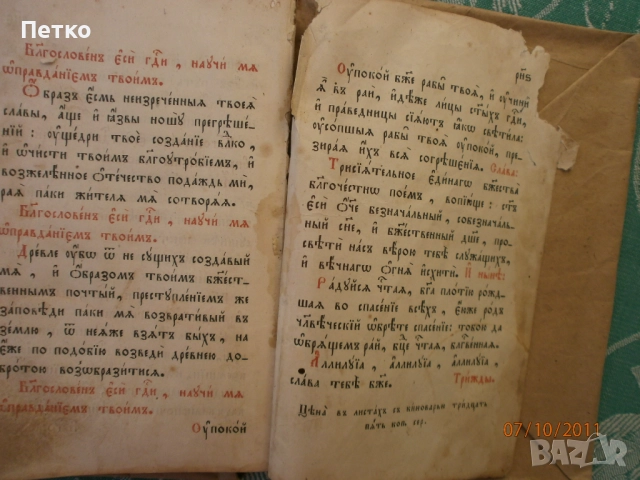 Петко
Бл҃гословенъ є҆сѝ гдⷭ҇и, научи мѧ
ѡ҆правданїємъ твоимъ.
Ѻ҆бразъ є҆смь неизреченныѧ твоеѧ
славы, аще и҆ ꙗ҆звы ношу прегрѣше-
нїй: ᲂу҆щедри твоѐ созданїе влⷣко,
и҆ ѡ҆чисти твоимъ бл҃гоутробїемъ, и҆
возжелѣнное ѻ҆течество подаждь ми,
раѧ паки жителѧ мѧ̀ сотворѧѧ.
Бл҃гословенъ є҆сѝ гдⷭ҇и, научи мѧ
ѡ҆правданїємъ твоимъ.
Древле ᲂу҆бѡ ѿ не сущихъ создавый
мѧ̀, и҆ ѻ҆бразомъ твоимъ бж҃ест-
веннымъ почтый, преступленїемъ же
заповѣди паки мѧ̀ возвративый въ
землю, ѿ неѧже взѧтъ быхъ, на
є҆же по подобїю возведи древнею до-
бротою возѡбразитисѧ.
Бл҃гословенъ є҆сѝ гдⷭ҇и, научи мѧ
ѡ҆правданїємъ твоимъ.
Оу҆покой
Оу҆покой бж҃е рабы твоѧ̀, и҆ ᲂу҆чини
ѧ҆̀ въ рай, и҆дѣже лицы ст҃ыхъ гдⷭ҇и,
и҆ праведницы сїѧютъ ꙗ҆кѡ свѣтила:
ᲂу҆сопшыѧ рабы твоѧ̀ ᲂу҆покой, пре-
зираѧ и҆хъ всѧ̀ согрѣшенїѧ. Слава:
Трисїѧтельное є҆динагѡ бж҃ества̀
бл҃гочестнѡ поемъ, вопїюще: ст҃ъ
є҆сѝ ѻ҆ч҃е безначальный, собезначаль-
ный сн҃е, и҆ бж҃ественный дш҃е, про-
свѣти насъ вѣрою тебѣ служащихъ,
и҆ вѣчнагѡ ѻ҆гнѧ и҆схити. И҆ нынѣ:
Радуйсѧ чⷭ҇таѧ, бг҃а плотїю рожд-
шаѧ во спасенїе всѣхъ, є҆юже родъ
чл҃вѣческїй ѡ҆брѣте спасенїе: тобою да
ѡ҆брѧщемъ рай, бцⷣе чⷭ҇таѧ, бл҃гвеннаѧ.
Аллилуїа, аллилуїа, аллилуїа,
слава тебѣ бж҃е. Трижды.
Цѣна въ листахъ съ киноварью тридцать
пѧть коп. сер.
07/10/2011
BAZAR